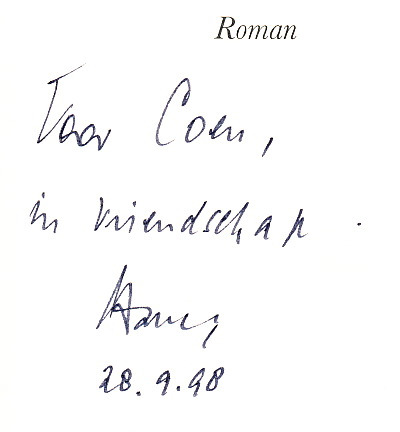 Roman
Voor Coen,
in vriendschap.
Harry
28.9.98